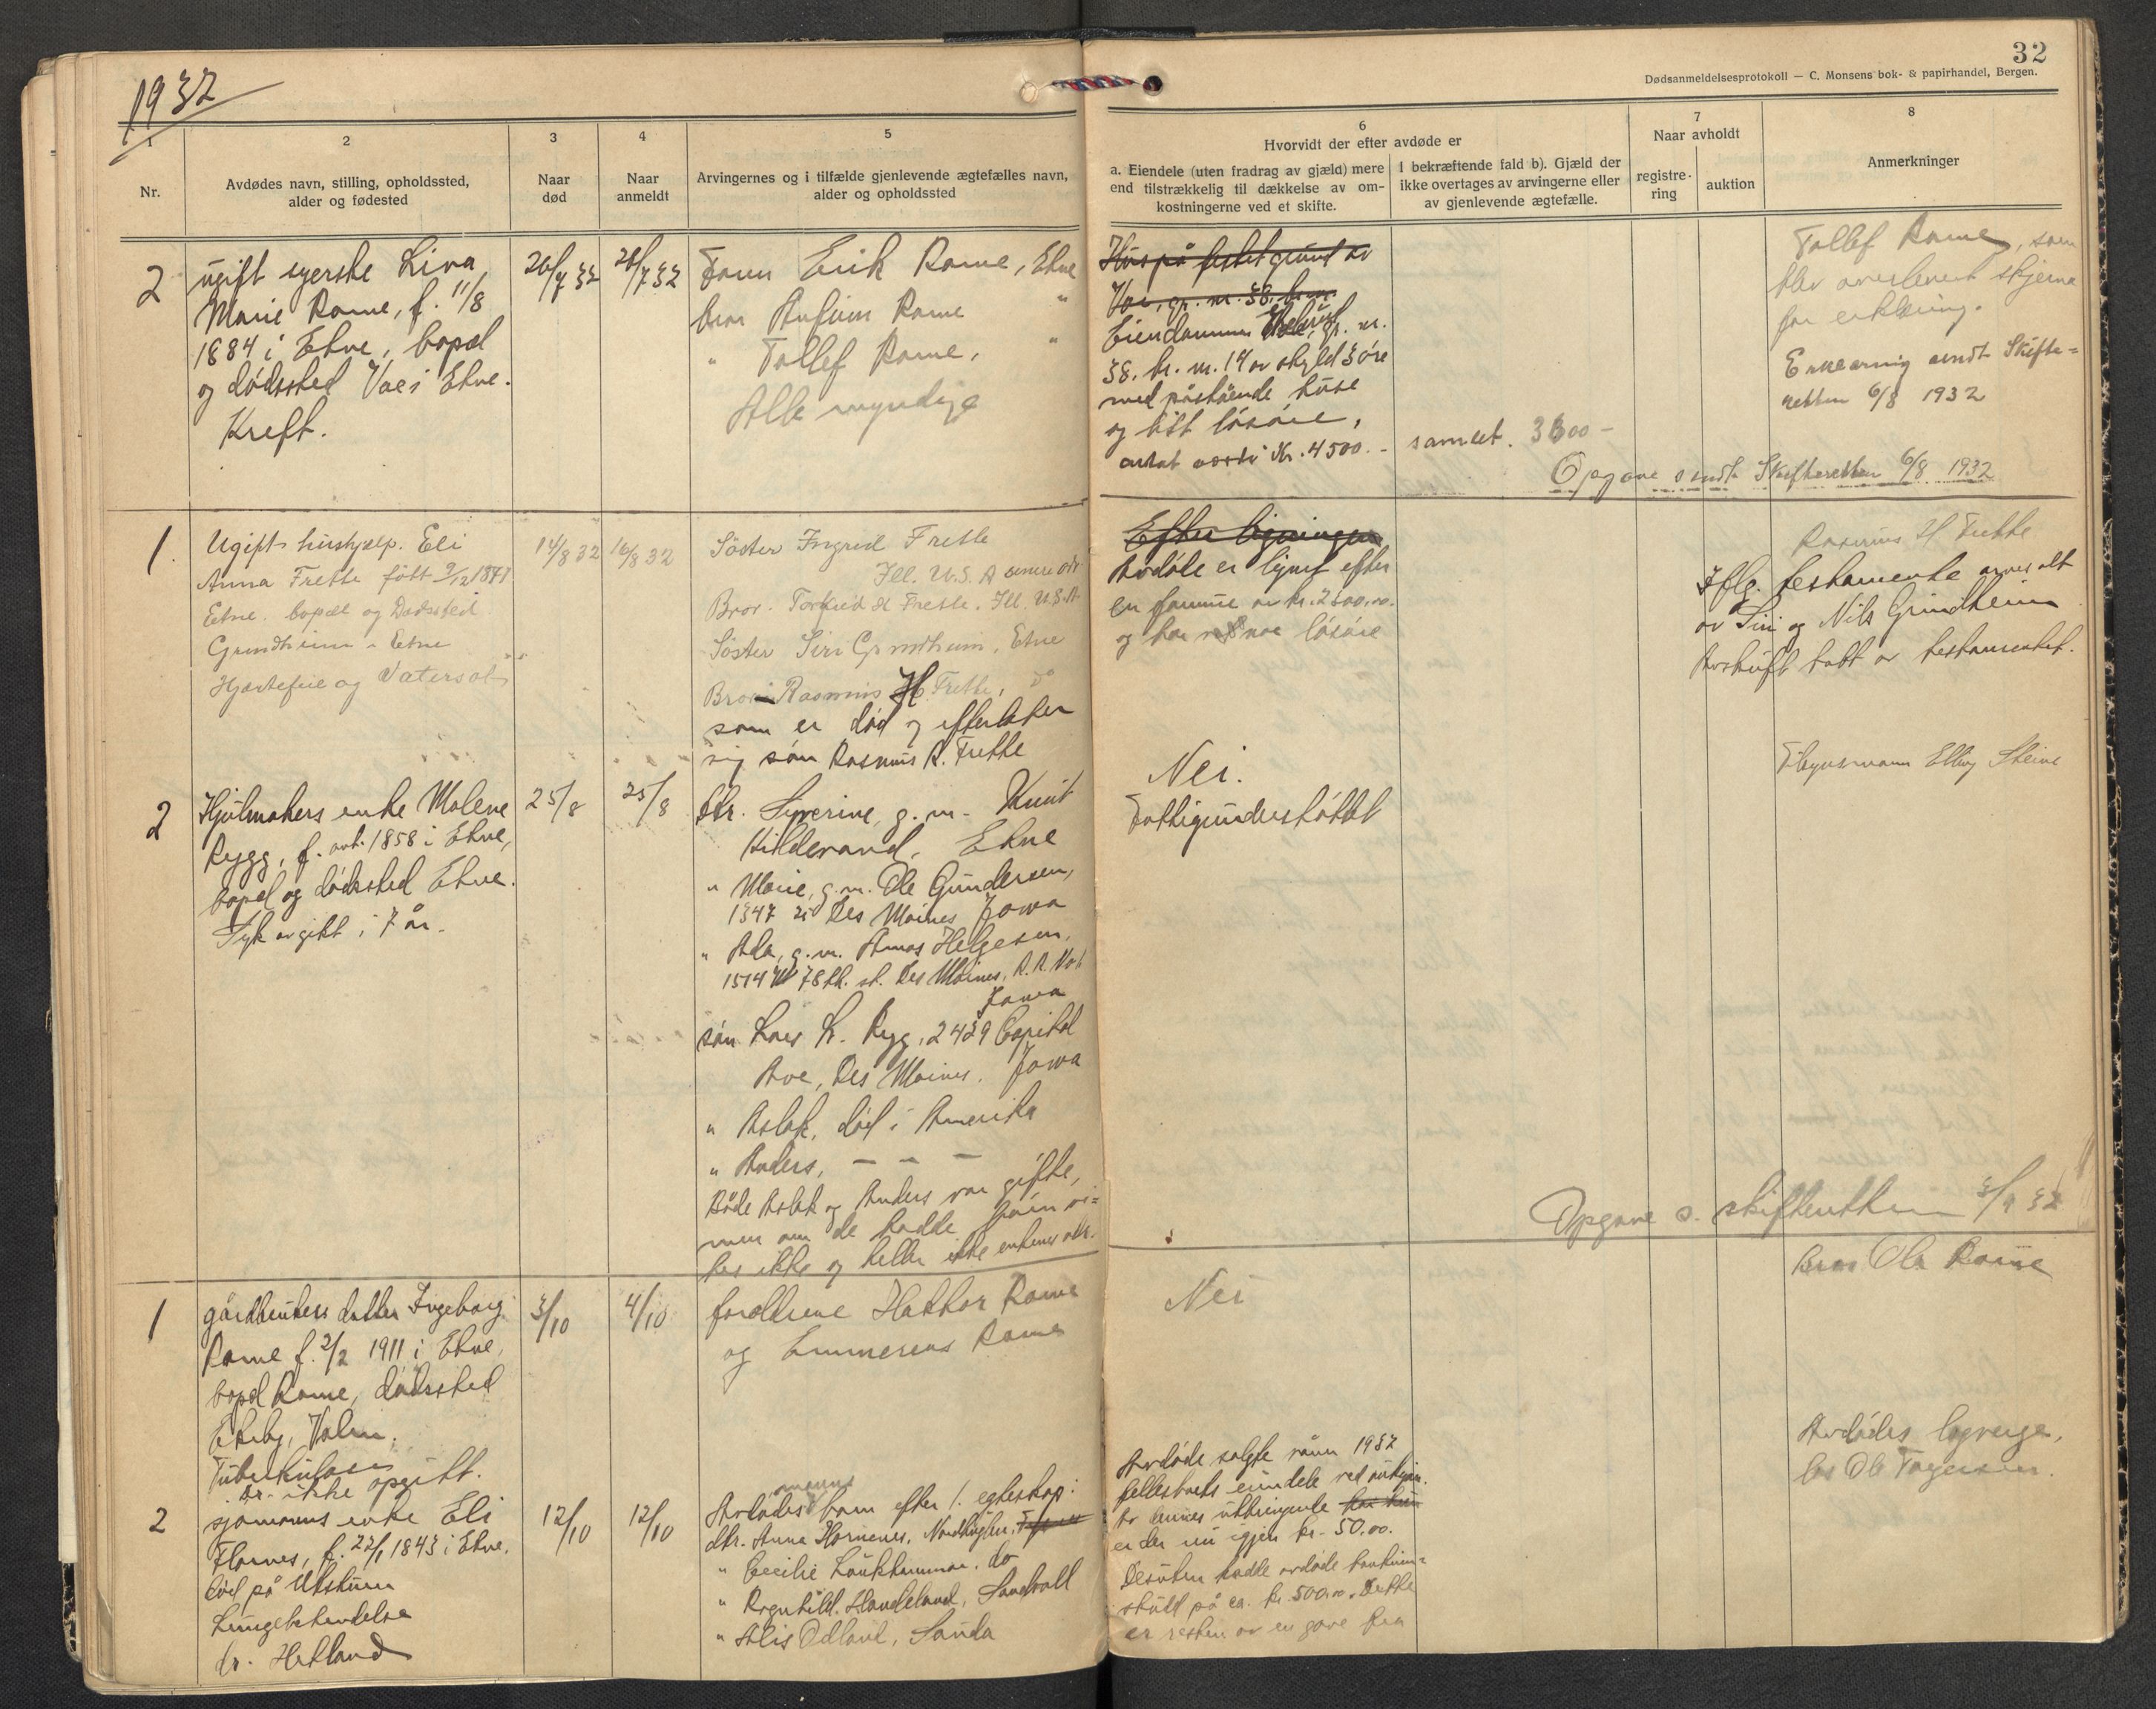 1932
32
Dødsanmeldelsesprotokoll — C. Monsens bok- & papirhandel, Bergen.
1
2
3
4
5
6
7
8
Nr.
Avdødes navn, stilling, opholdssted,
alder og fødested
Naar
død
Naar
anmeldt
Arvingernes og i tilfælde gjenlevende ægtefælles navn,
alder og opholdssted
Hvorvidt der efter avdøde er
a. Eiendele (uten fradrag av gjæld) mere
end tilstrækkelig til dækkelse av om-
kostningerne ved et skifte.
I bekræftende fald b). Gjæld der
ikke overtages av arvingerne eller
av gjenlevende ægtefælle.
Naar avholdt
registre-
ring
auktion
Anmerkninger
2
ugift syerske Liva
Marie Rame, f. 11/8
1884 i Etne, bopæl
og dødssted Vae i Etne.
Kreft.
26/7 32
28/7 32
Erik Rame, Etne
bror Rame "
" Tollef Rame, "
Alle myndige
Hus på festet grund av
Vae, gr. nr. 38, br. nr.
Eiendommen gr. nr.
38. br. nr. 14 av skyld 3 øre
med påstående huse
og litt løsøre,
antat verdi kr. 4500.-
samlet. 3600 -
Tollef Rame, som
blev overlevert skjema
for erklæring.
Erklæring sendt Skifte-
retten 6/8 1932
Opgave sendt Skifteretten 6/8 1932
1.
Ugift hushjelp. Eli
Anna Frette født 9/12 1841
Etne. bopæl og Dødssted
Grindheim - Etne
Hjertefeil og Vatersot
14/8 32
16/8 32
Søster Ingred Frette
Ill. U.S.A
Bror. Frette. Ill. U.S.A
Søster Siri Grindheim, Etne
Bror Rasmus H. Frette, do
som er død og efterlater
sig søn Rasmus R. Frette
Efter ligningen
Avdøde er lignet efter
en formue av kr. 2600,00.
og har noe løsøre
Rasmus H Frette
Iflg. testamente arves alt
av Siri og Nils Grindheim
Avskrift tatt av testamentet.
2
Hjulmakers enke Malene
Rygg, f. okt. 1858 i Etne,
bopel og dødssted Etne.
Syk av gikt i 7 år.
25/8
25/8
dtr. Severine, g. m. Knut
Hilderand, Etne
" Marie, g.m. Ole Gundersen,
1347 Des Moines Jowa
" Ada, g. m. Amos Helgesen,
1514 W 78th. st. Des Moines, R.R. No 1
Jowa
søn Lars L. Rygg, 2429 Capitol
Ave, Des Moines. Jowa
" Aslak, død i Amerika
" Anders, — — —
Både Aslak og Anders var gifte,
men om de hadde barn vi-
tes ikke og heller ikke enkenes adr.
Nei.
Fattigunderstøttet
Tilsynsmann Elling Steine
Opgave s. skifteretten 3/9 32
1
gårdbrukers datter Ingeborg
Rame f. 2/2 1911 i Etne,
bopel Rame, dødssted
Etneby, Valen.
Tuberkulose
Dr. ikke opgitt.
3/10
4/10
foreldrene Halvor Rame
og Rame
Nei
Bror Ole Rame
2
sjømanns enke Eli
Flornes, f. 22/1 1843 i Etne.
død på Utskuren
Lungebetendelse
dr. Hetland
12/10
12/10
Avdødes manns barn efter 1. egteskap:
dtr. Anna Hornenes,
" Cecilie Laukhammar. do
" Ragnhild. Handeland, Sandvoll
" Alis Ødland, Sauda
Avdøde solgte våren 1932
fellesboets eiendele ved auksjon.
Av dennes utbringende har hun
er der nu igjen kr. 50.00.
Desuten hadde avdøde bankinn-
skudd på ca. kr. 500.00. Dette
er resten av en gave fra
Avdødes lagverge,
Ole